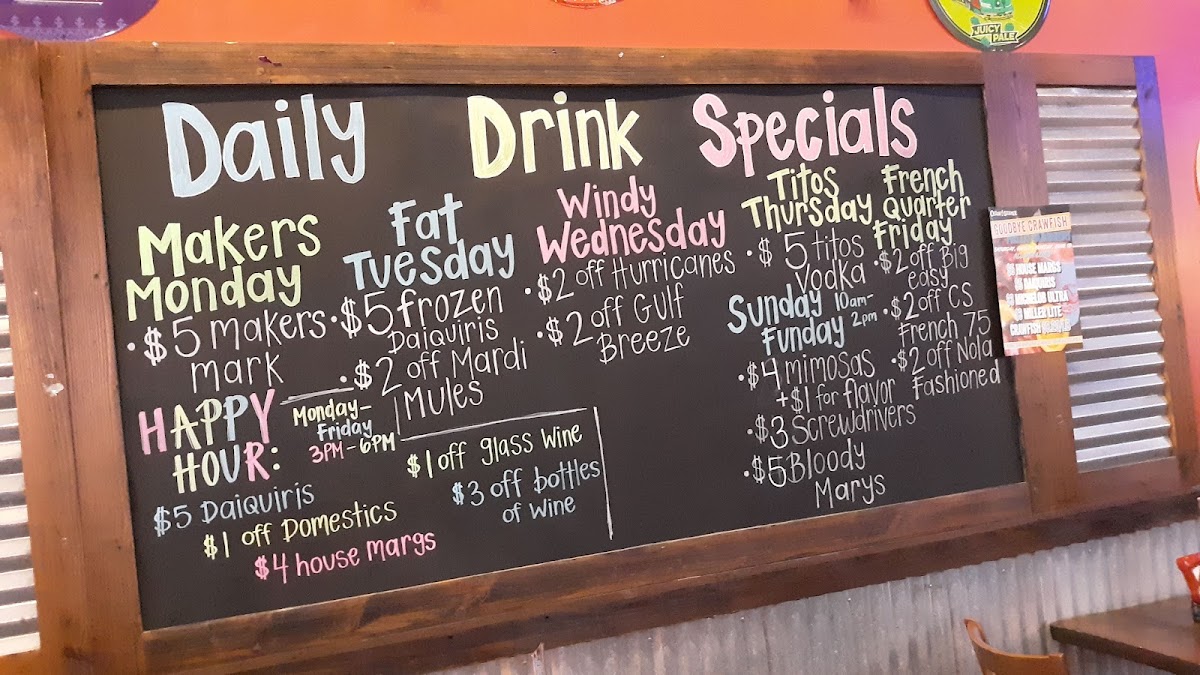 JUICY
PALE
Daily Drink Specials
Makers
Monday
• $5 makers
mark
Fat
Tuesday
• $5 frozen
Daiquiris
• $2 off Mardi
Mules
Windy
Wednesday
• $2 off Hurricanes
• $2 off Gulf
Breeze
Titos
Thursday
• $5 titos
Vodka
French
Quarter
Friday
• $2 off Big
easy
• $2 off CS
French 75
• $2 off Nola
Fashioned
Sunday
Funday
10am-
2pm
• $4 mimosas
+ $1 for flavor
• $3 Screwdrivers
• $5 Bloody
Marys
HAPPY
HOUR:
Monday-
Friday
3PM-6PM
$5 Daiquiris
$1 off Domestics
$4 house margs
$1 off glass wine
$3 off bottles
of wine
GOODBYE CRAWFISH
HOUSE MARGS
MICHELOB ULTRA
MILLER LITE
CRAWFISH